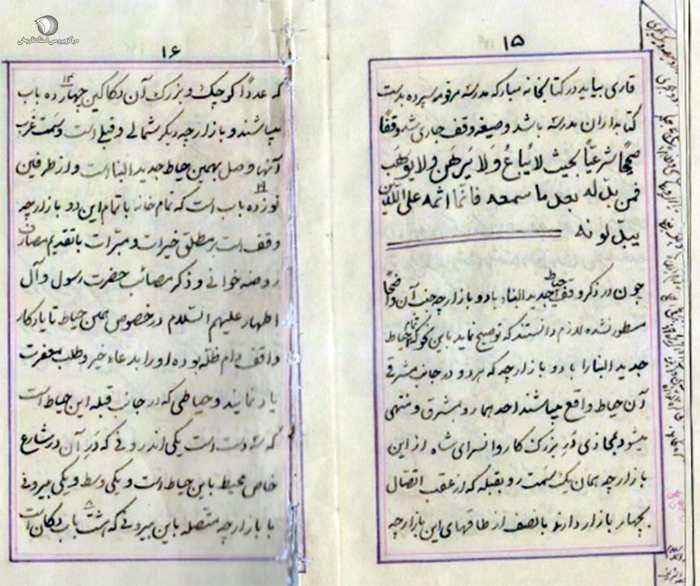 ۱۵
قاری بیاید در کتابخانه مبارکه مدرسه مرقومه سپرده بدست
کتابداران مدرسه باشد و صیغه وقف جاری شد وقفا
صحیحا شرعیا بحیث لا یباع ولا یرهن ولا یوهب
فمن بدله بعد ما سمعه فانما اثمه علی الذین
یبدلونه
چون در ذکر وقف حیاط جدید البناء با دو بازارچه جنب آن واضحا
مسطور نشده لازم دانستند که توضیح نماید باین گونه که تمام حیاط
جدید البنا را با دو بازارچه که هر دو در جانب مشرقی
آن حیاط واقع میباشند احدهما رو بمشرق و منتهی
میشود بمجازی در بزرگ کاروانسرای شاه از این
بازارچه همان یک سمت رو بقبله که از عقب اتصال
بچهار بازار دارند با نصف از طاقهای این بازارچه
۱۶
که عددا کوچک و بزرگ آن دکاکین چهارده باب ۱۴
میباشند و بازارچه دیگر شمالی و قبلی است و سمت غرب
آنها وصل بهمین حیاط جدید البنا است و از طرفین
نوزده باب است که تمام خانه با تمام این دو بازارچه ۱۹
وقف است بر مطلق خیرات و مبرات با تقدیم مصارف
روضه خوانی و ذکر مصائب حضرت رسول و آل
اطهار علیهم السلام در خصوص همین حیاط تا یادگار
واقف دام ظله بوده او را بدعاء خیر و طلب مغفرت
یاد نمایند و حیاطی که در جانب قبله این حیاط است
که سه دست است یکی اندرونی که در آن در شارع
خاص محیط باین حیاط است و یکی وسط و یکی بیرونی
با بازارچه متصله باین بیرونی که هشت باب دکان است ۸
مرکز بررسی اسناد تاریخی